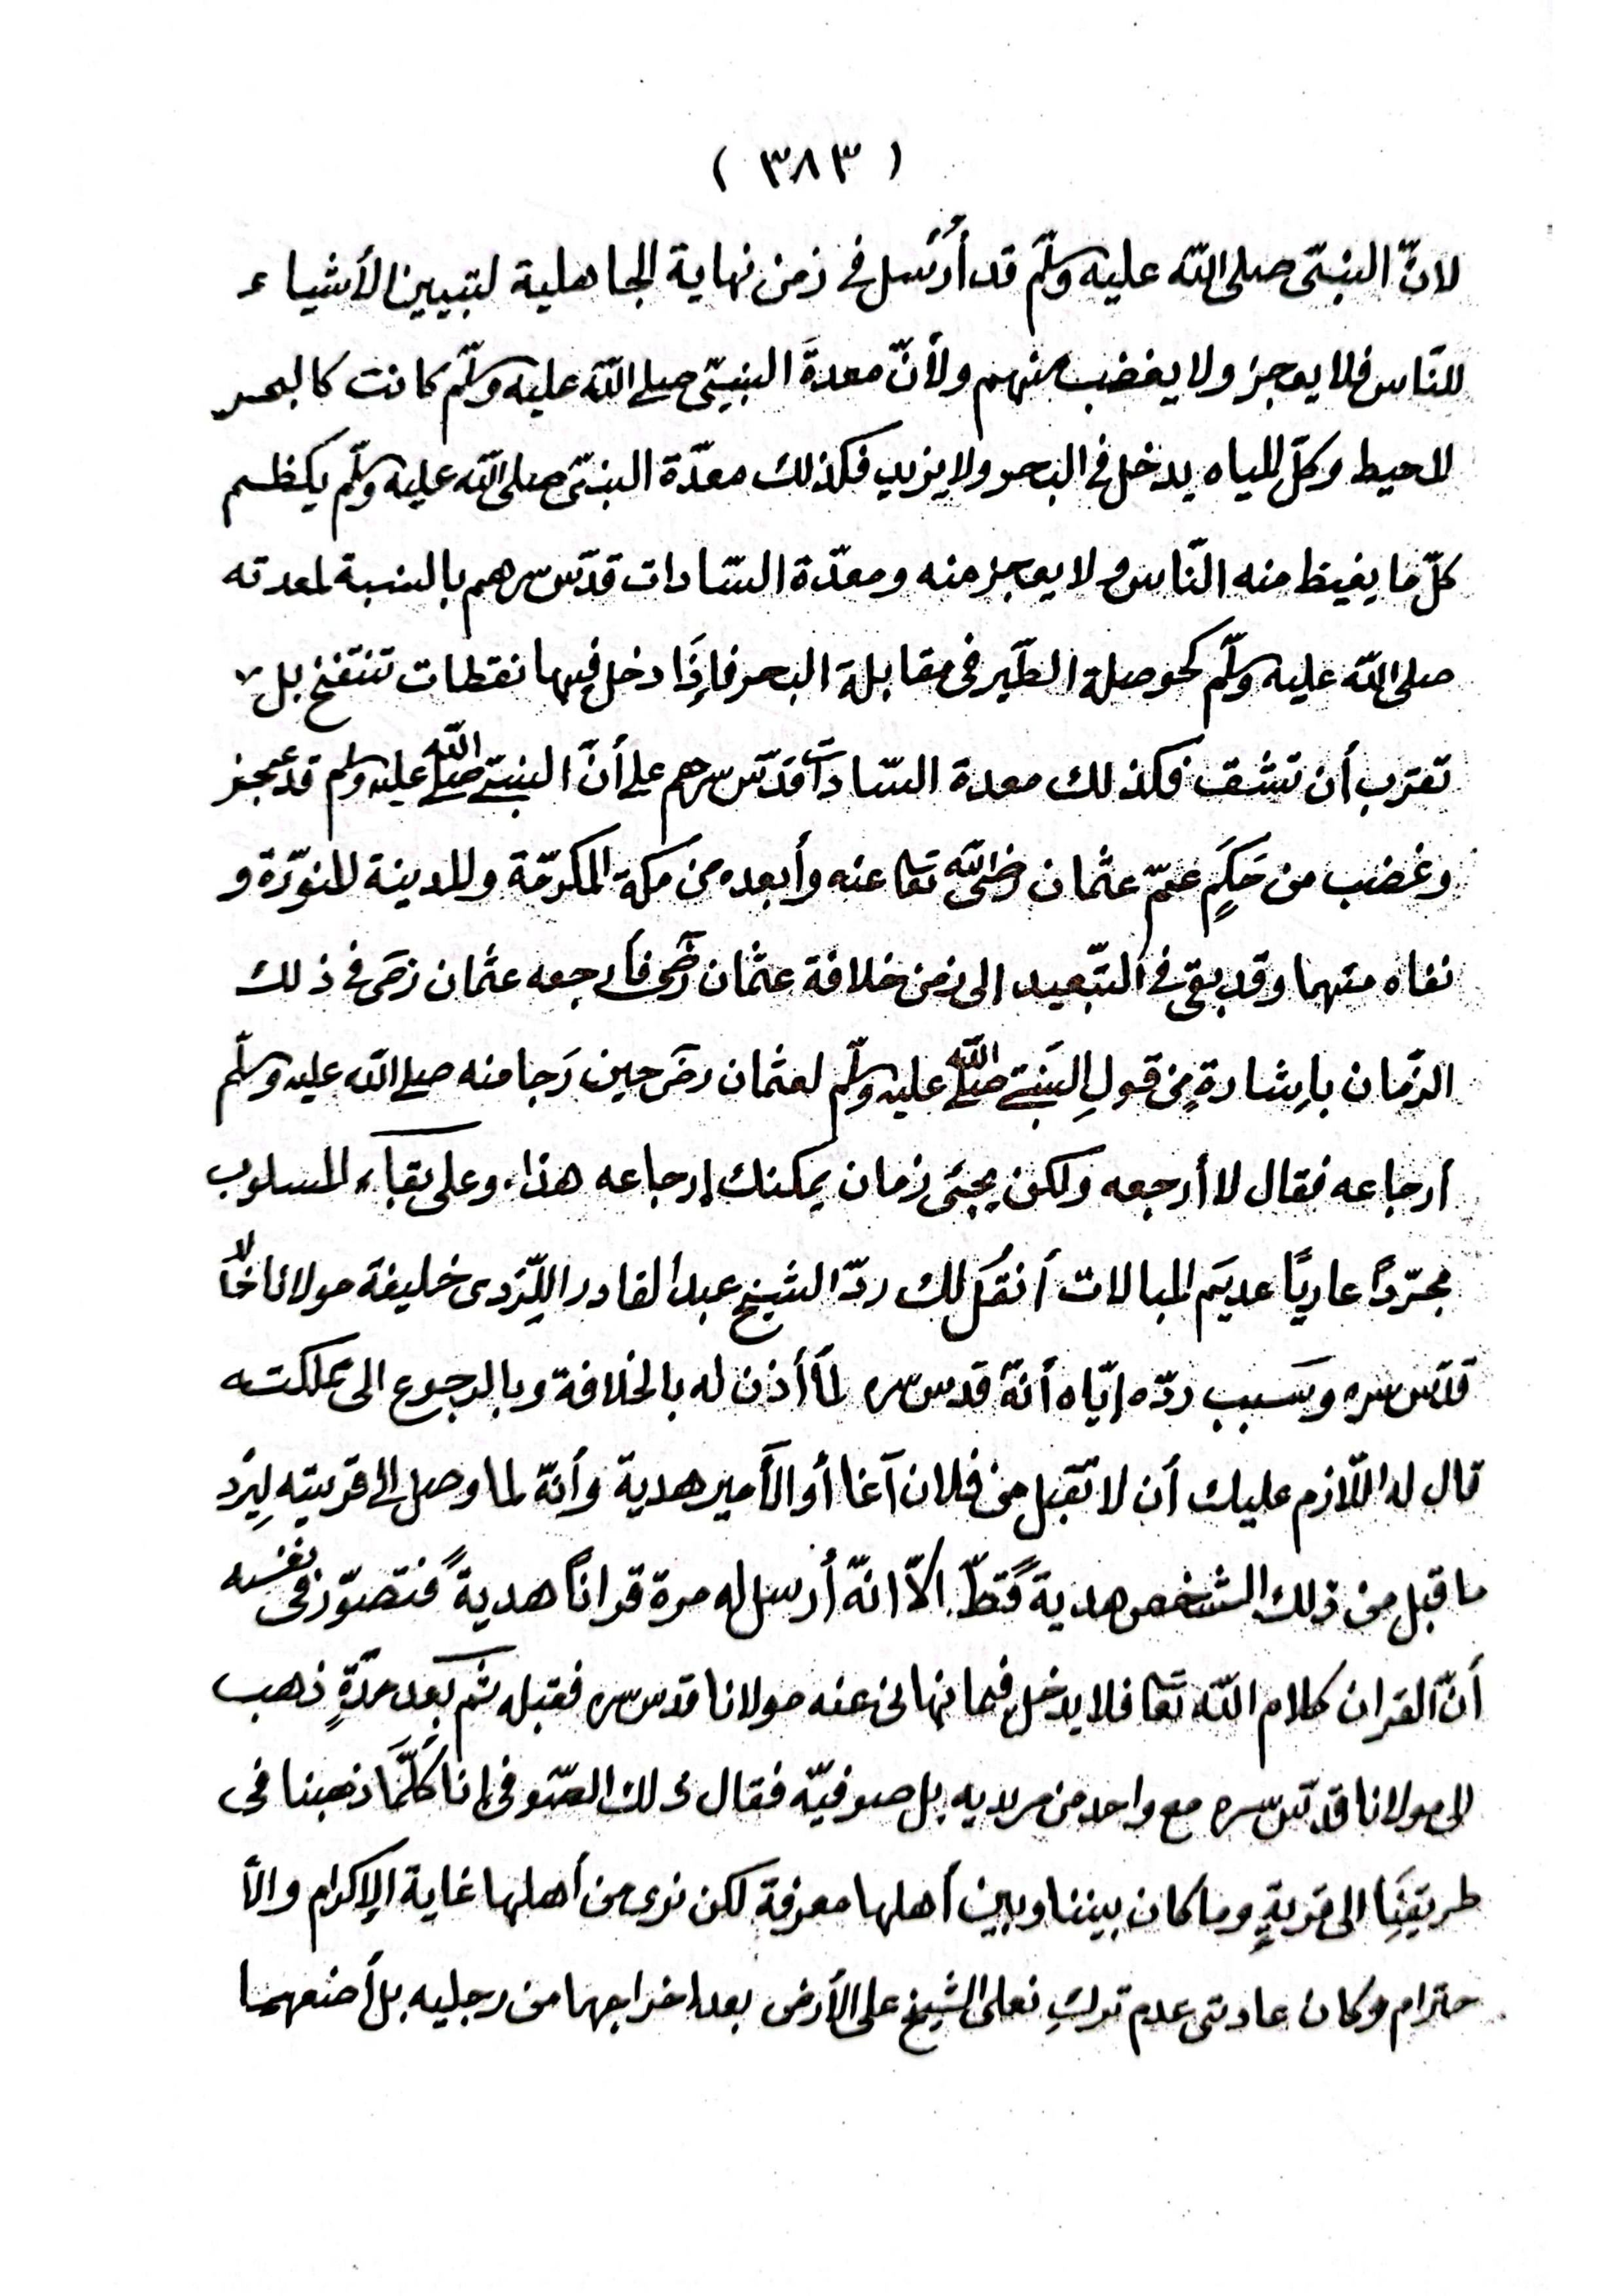 ( ٣٨٣ )
لانّ النبىّ صلى اللّه عليه وسلّم قد أُرْسل فى زمن نهاية الجاهلية لتبيين الأشياء
للنّاس فلا يعجز ولا يغضب منهم ولأنّ معدةَ النبىّ صلى اللّه عليه وسلّم كانت كالبحر
المحيط وكلّ المياه يدخل فى البحر ولا يزيد فكذلك معدّة النبىّ صلى اللّه عليه وسلّم يكظم
كلّ ما يغيظ منه النّاس ولا يعجز منه ومعدّة السّادات قدّس سرهم بالنسبة لمعدته
صلى اللّه عليه وسلّم كحوصلة الطّير فى مقابلة البحر فإذَا دخل فيها نقطات تنتفخ بل
تقترب أن تشق فكذلك معدة السّادات قدّس سرهم على أنّ النبىّ صلى اللّه عليه وسلم قد عجز
وغضب من حَكَمٍ عمّ عثمان رضى اللّه تعا عنه وأبعده من مكة المكرمّة والمدينة المنوّرة و
نفاه منهما وقد بقى فى التّبعيد الى زمن خلافة عثمان رضى فأرجعه عثمان رضى فى ذلك
الزّمان بإشارةٍ من قولِ النبىّ صلى اللّه عليه وسلّم لعثمان رضَى حين رَجا منه صلى اللّه عليه وسلّم
أرجاعه فقال لا أرجعه ولكن يجئ زمان يمكنك إرجاعه هذا، وعلى بقاء المسلوب
مجرّدًا عاريًا عديَم المبالات أنقُل لك ردّ الشيخ عبد القادر اللِّزدى خليفة مولانا خالد
قدّس سره وسبب ردّه إيّاه أنّه قدس سره لمّا أذن له بالخلافة وبالرجوع الى مملكته
قال له اللّازم عليك أن لا تقبل من فلان آغا أو الأمير هدية وأنّه لما وصل الى قريته لِيزد
ما قبل من ذلك الشخص هدية قطّ الاّ انّه أرسل له مرة قرانًا هديةً فتصوّر فى نفسه
أنّ القران كلام اللّه تعا فلا يدخل فيما نهانى عنه مولانا قدس سره فقبله ثم بعد مدّةٍ ذهب
الى مولانا قدّس سره مع واحد من مريديه بل صوفيّه فقال ذلك الصّوفى إنا كلّمَا ذهبنا فى
طريقنَا الى قريةٍ وما كان بيننا وبين أهلها معرفة لكن نرى من أهلها غاية الإكرام والأ
حترام وكان عادتى عدم تركِ نعلى الشيخ على الأرض بعد اخراجهما من رجليه بل أضعهما